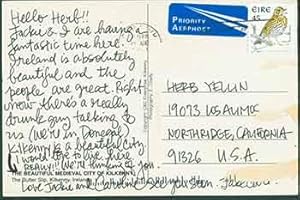 Hello Herb!!
Jackie & I are having a
fantastic time here.
Ireland is absolutely
beautiful and the
people are great. Right
now there's a really
drunk guy talking to
us (we're in Donegal)
Kilkenny is a beautiful city
I would love to live here
REALLY! We're thinking of you.
THE BEAUTIFUL MEDIEVAL CITY OF KILKENNY,
The Butter Slip, Kilkenny, Ireland
Love Jackie and see you soon
PRIORITY
AERPHOST
ÉIRE
45
HERB YELLIN
19073 LOS ALIMOS
NORTHRIDGE, CALIFORNIA
91326 U.S.A.